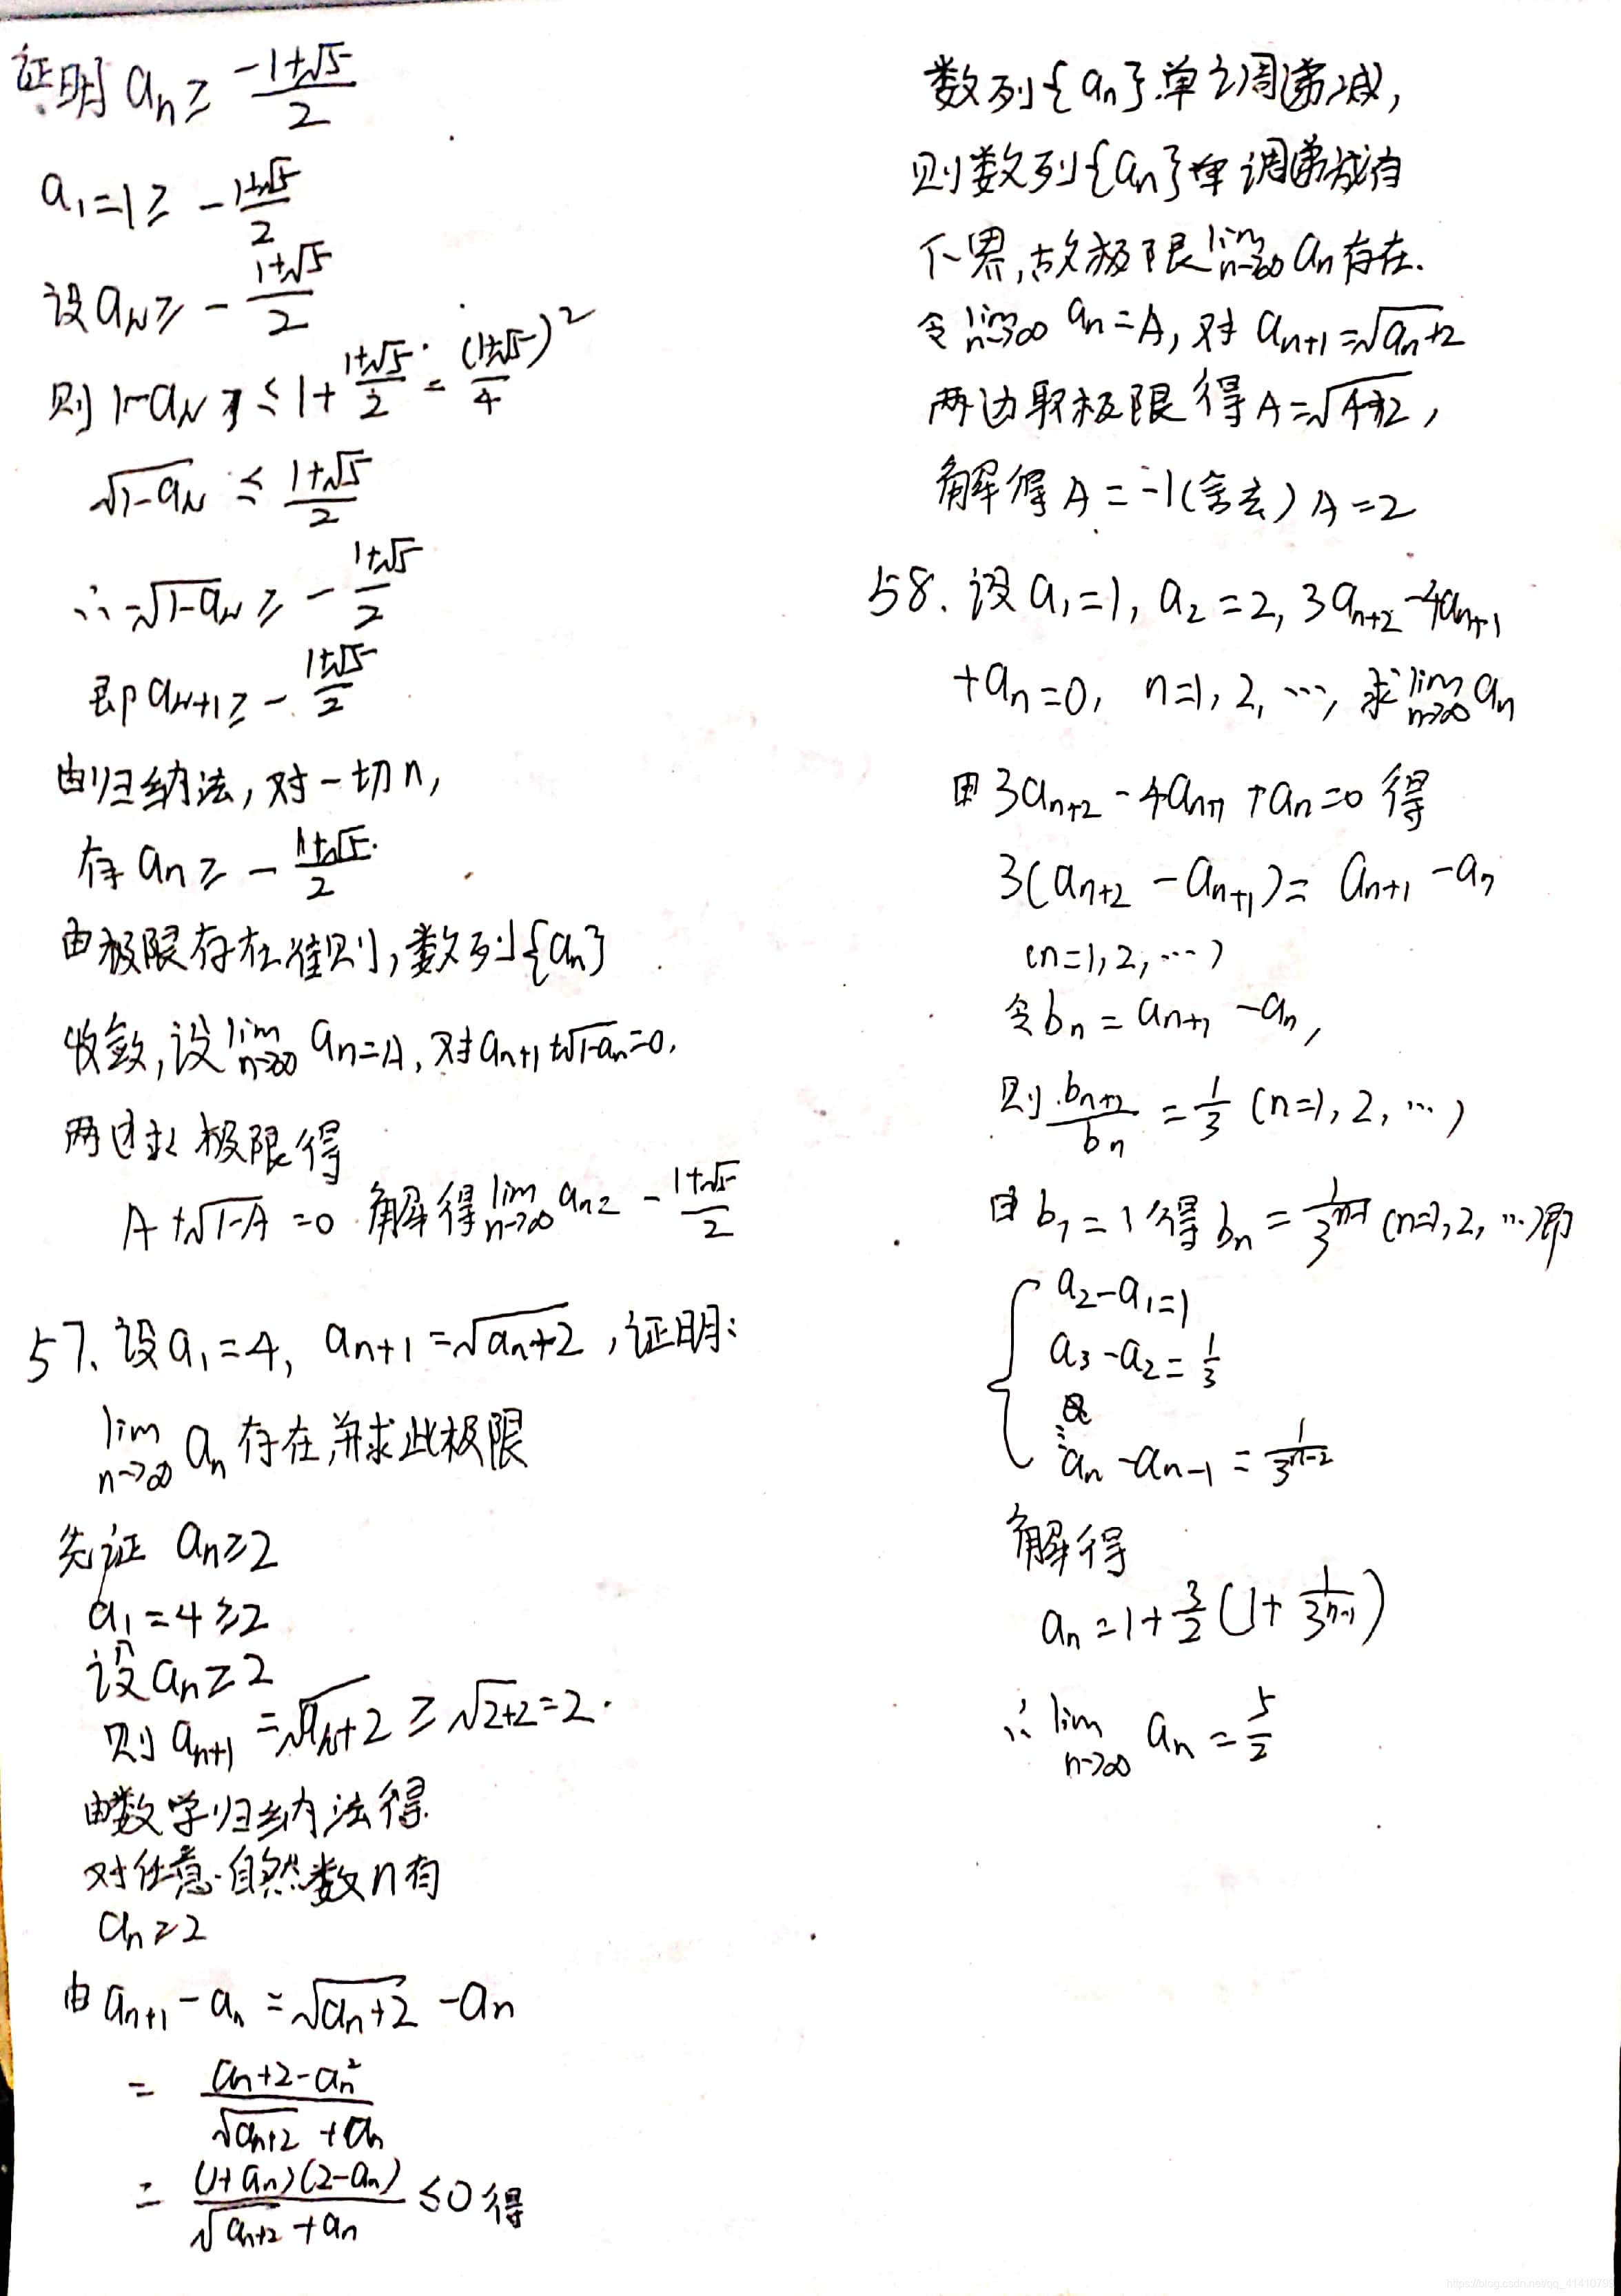 证明 aₙ ≥ (-1+√5)/2
a₁=1 ≥ -(1+√5)/2
设 a_N ≥ -(1+√5)/2
则 1-a_N ≤ 1+(1+√5)/2 = (1+√5)²/4
√(1-a_N) ≤ (1+√5)/2
∴ -√(1-a_N) ≥ -(1+√5)/2
即 a_{N+1} ≥ -(1+√5)/2
由归纳法，对一切n，
有 aₙ ≥ -(1+√5)/2
由极限存在准则，数列{aₙ}
收敛，设 lim_{n→∞} aₙ=A，对 a_{n+1}+√(1-aₙ)=0，
两边取极限得
A+√(1-A)=0 解得 lim_{n→∞} aₙ= -(1+√5)/2
57. 设 a₁=4，a_{n+1}=√(aₙ+2)，证明：
lim_{n→∞} aₙ 存在，并求此极限
先证 aₙ≥2
a₁=4≥2
设 aₙ≥2
则 a_{n+1}=√(aₙ+2) ≥ √(2+2)=2.
由数学归纳法得
对任意自然数n有
aₙ≥2
由 a_{n+1}-aₙ=√(aₙ+2)-aₙ
= (aₙ+2-aₙ²)/(√(aₙ+2)+aₙ)
= (1+aₙ)(2-aₙ)/(√(aₙ+2)+aₙ) ≤0 得
数列{aₙ}单调递减，
则数列{aₙ}单调递减有
下界，故极限 lim_{n→∞} aₙ 存在.
令 lim_{n→∞} aₙ=A，对 a_{n+1}=√(aₙ+2)
两边取极限得 A=√(A+2)，
解得 A=-1(舍去) A=2
58. 设 a₁=1, a₂=2, 3a_{n+2}-4a_{n+1}
+aₙ=0, n=1, 2, …, 求 lim_{n→∞} aₙ
由 3a_{n+2}-4a_{n+1}+aₙ=0 得
3(a_{n+2}-a_{n+1})=a_{n+1}-aₙ
(n=1, 2, …)
令 bₙ=a_{n+1}-aₙ，
则 b_{n+1}/bₙ=1/3 (n=1, 2, …)
由 b₁=1 得 bₙ=1/3^{n-1} (n=1, 2, …) 即
a₂-a₁=1
a₃-a₂=1/3
⋮
aₙ-a_{n-1}=1/3^{n-2}
解得
aₙ=1+3/2(1+1/3^{n-1})
∴ lim_{n→∞} aₙ=5/2